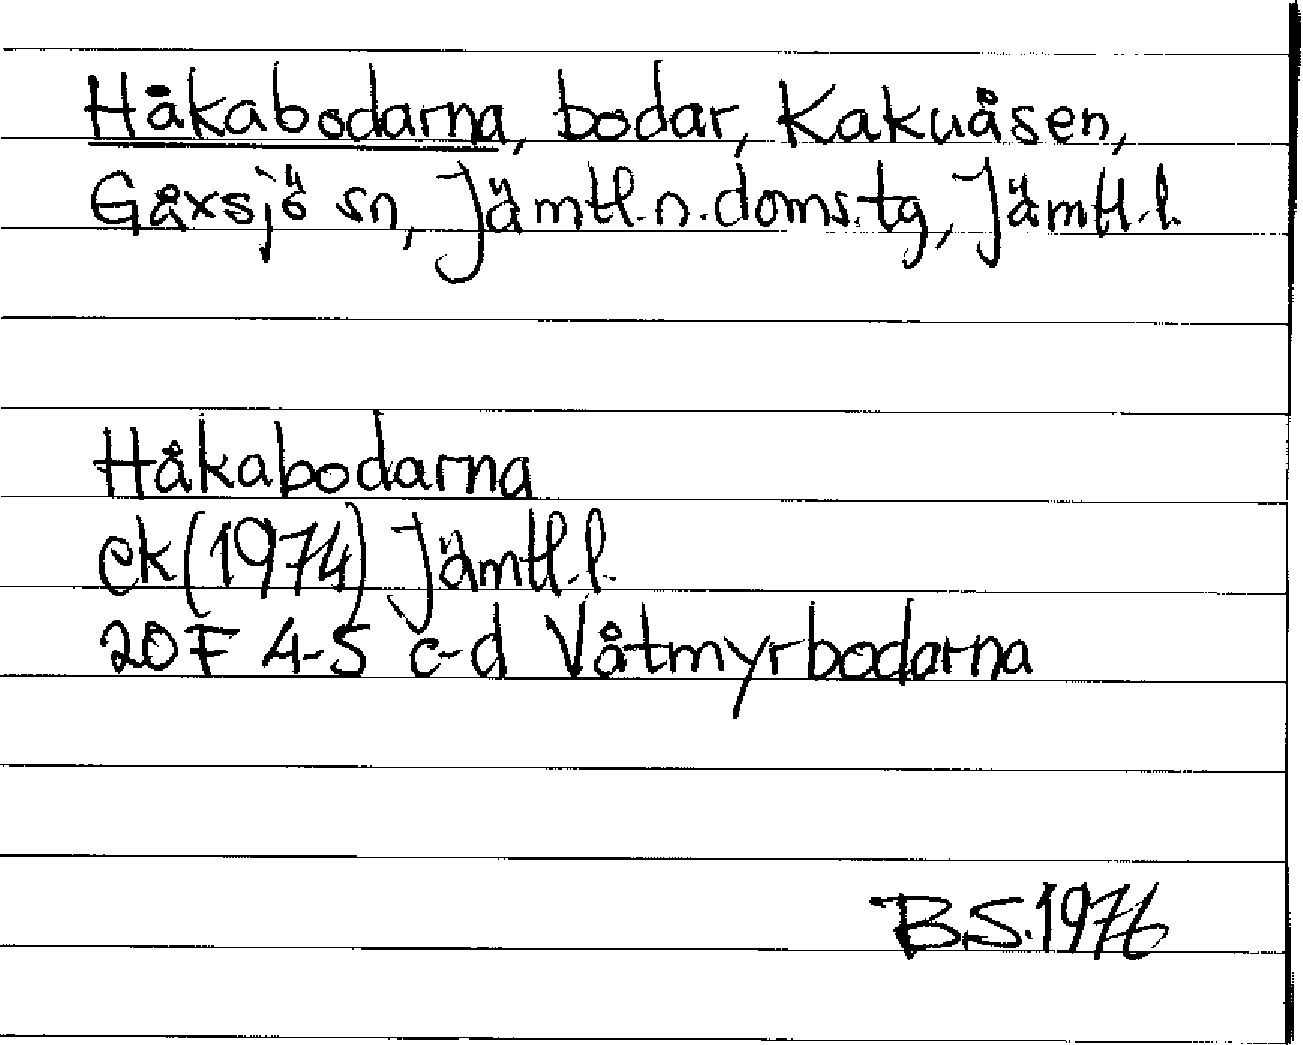 Håkabodarna, bodar, Kakuåsen,
Gåxsjö sn, Jämtl.n.doms.tg, Jämtl.l.
Håkabodarna
ek (1974) Jämtl.l.
20F 4-5 c-d Våtmyrbodarna
B.S. 1976